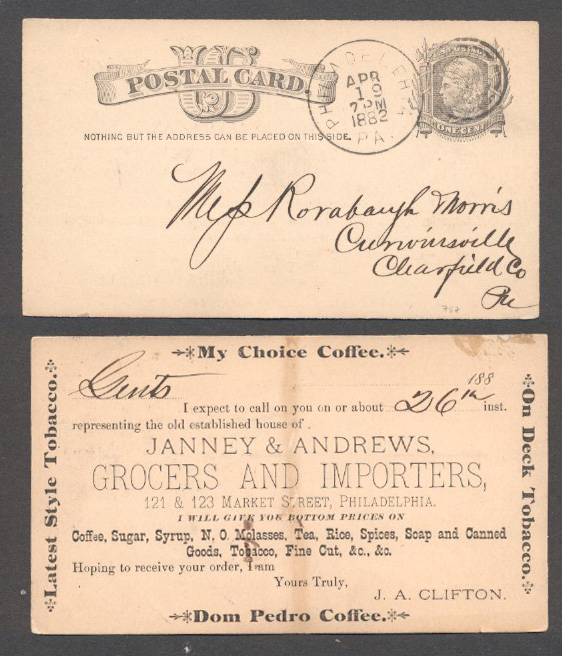 US
POSTAL CARD.
NOTHING BUT THE ADDRESS CAN BE PLACED ON THIS SIDE.
PHILADELPHIA
APR
19
7 PM
1882
PA.
U.S. POSTAGE
ONE CENT
Mess Rorabaugh Morris
Curwinsville
Clearfield Co
Pa
757
My Choice Coffee.
Latest Style Tobacco.
On Deck Tobacco.
188
Gents
I expect to call on you on or about 26th inst.
representing the old established house of
JANNEY & ANDREWS,
GROCERS AND IMPORTERS,
121 & 123 MARKET STREET, PHILADELPHIA.
I WILL GIVE YOU BOTTOM PRICES ON
Coffee, Sugar, Syrup, N. O. Molasses, Tea, Rice, Spices, Soap and Canned
Goods, Tobacco, Fine Cut, &c., &c.
Hoping to receive your order, I am
Yours Truly,
J. A. CLIFTON.
Dom Pedro Coffee.